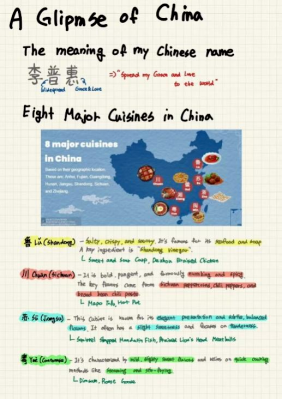 A Glipmse of China
The meaning of my Chinese name
李普惠
Widespread Grace & Love
=> "Spread my Grace and Love
to the world"
Eight Major Cuisines in China
8 major cuisines
in China
Based on their geographic location.
These are: Anhui, Fujian, Guangdong,
Hunan, Jiangsu, Shandong, Sichuan
and Zhejiang.
鲁 Lǔ (Shandong) - Salty, crispy, and savory. It's famous for its seafood and soup
A key ingredient is "Shandong Vinegar".
↳ Sweet and Sour Carp, Dezhou Braised Chicken
川 Chuān (Sichuan) - It is bold, pungent, and famously numbing and spicy
The key flavors come from Sichuan peppercorns, chili peppers, and
broad bean chili paste
↳ Mapo Tofu, Hot Pot
苏 Sū (Jiangsu) - This cuisine is known for its elegant presentation and subtle, balanced
flavors. It often has a slight sweetness and focuses on tenderness.
↳ Squirrel Shaped Mandarin Fish, Braised Lion's Head Meatballs
粤 Yuè (Guangdong) - It's characterized by mild, slightly sweet flavors and relies on quick cooking
methods like steaming and stir-frying.
↳ Dimsum,